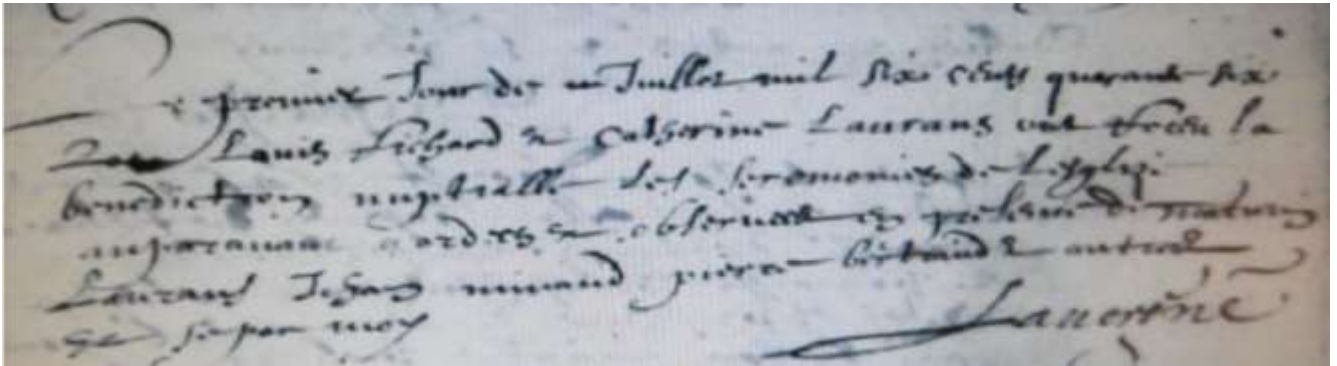 Le premier Jour de Juillet mil six cents quarante six
Louis Richard & Catherine Laurans ont receu la
benediction nuptialle les seremonies de Leglize
auparavant gardees & observees en presence de maturin
Laurans Jehan pierre bertrand & autres
par moy